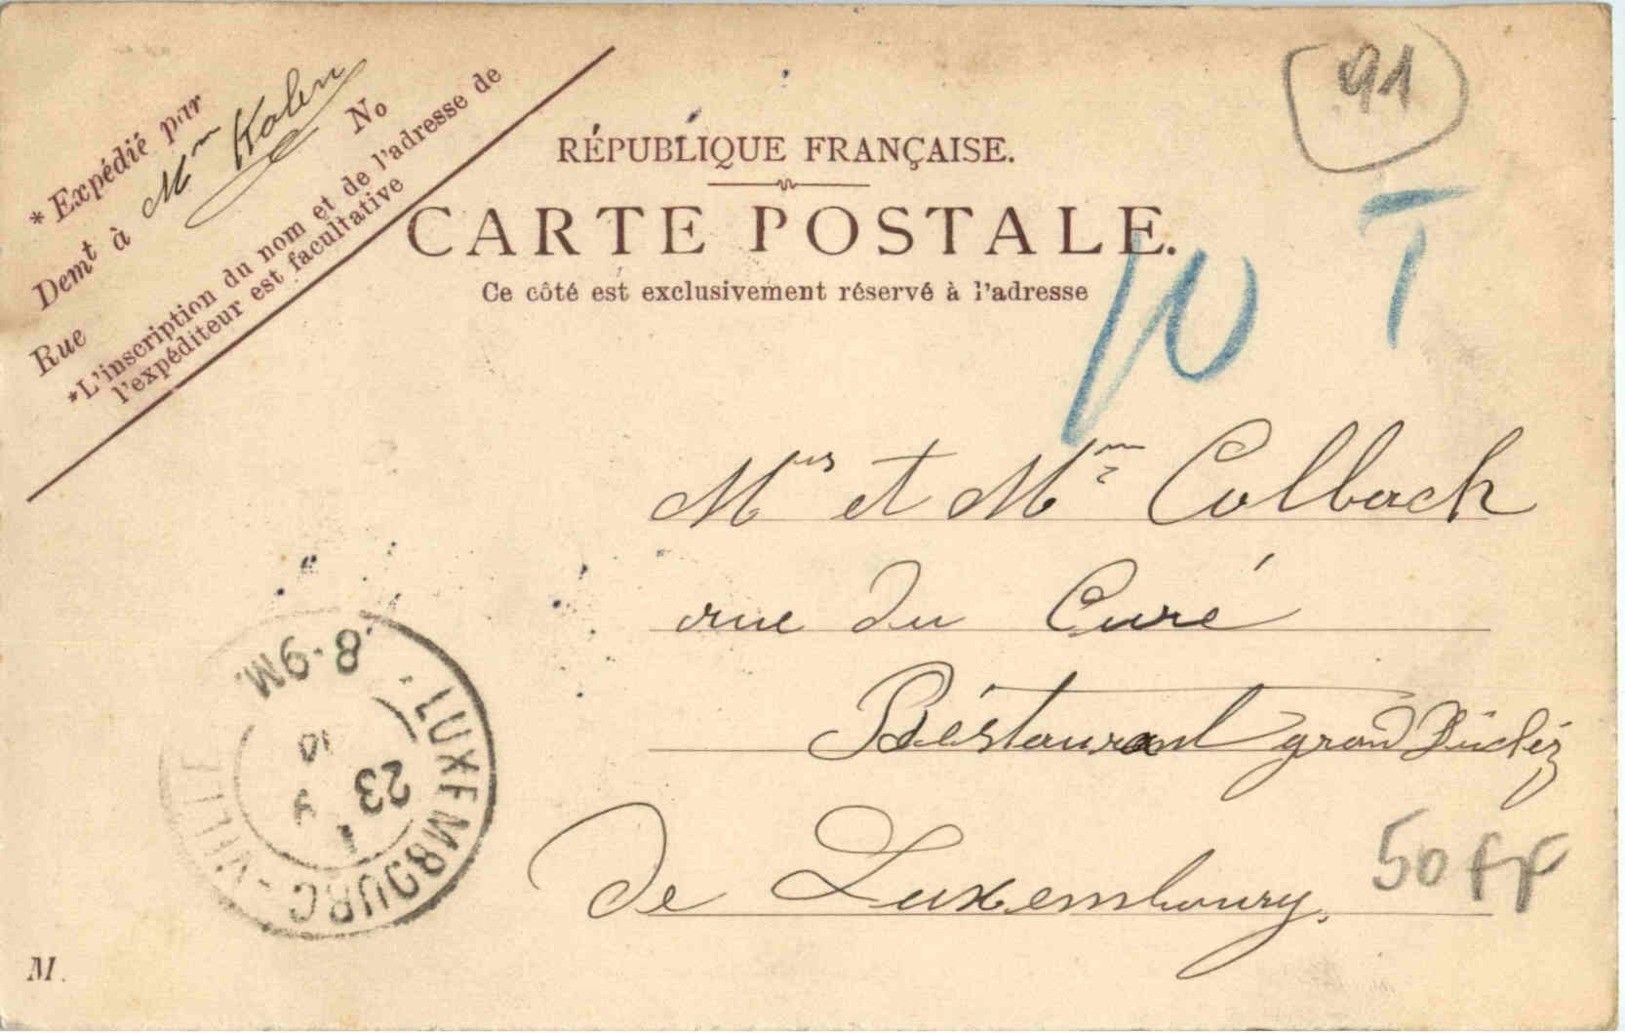 * Expédié par
Mm Kolen
Demt à
No
Rue
*L'inscription du nom et de l'adresse de
l'expéditeur est facultative
RÉPUBLIQUE FRANÇAISE.
CARTE POSTALE.
Ce côté est exclusivement réservé à l'adresse
91
T
10
Mrs et Mme Colbach
rue du Curé
Réstaurant grand
de Luxembourg.
50 FF
LUXEMBOURG-VILLE
8-9M.
23
10
M.